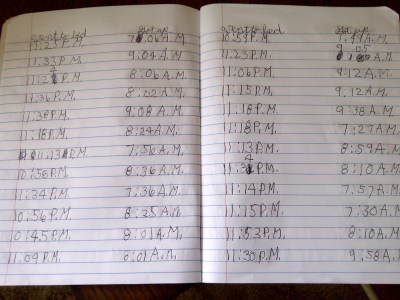 went to bed got up
11:25 P.M. 7:06 A.M.
11:33 P.M. 9:04 A.M.
11:2 P.M. 8:06 A.M.
11:36 P.M. 8:02 A.M.
11:38 P.M. 9:08 A.M.
11:18 P.M. 8:24 A.M.
11:13 P.M. 7:56 A.M.
10:58 P.M. 8:36 A.M.
11:34 P.M. 7:36 A.M.
10:56 P.M. 8:25 A.M.
10:45 P.M. 8:01 A.M.
11:09 P.M. 6:01 A.M.
went to bed got up
10:59 P.M. A.M.
11:23 P.M. 9:05 A.M.
11:06 P.M. 9:12 A.M.
11:15 P.M. 9:12 A.M.
11:18 P.M. 9:38 A.M.
11:18 P.M. 7:27 A.M.
11:13 P.M. 8:59 A.M.
P.M. 8:10 A.M.
11:14 P.M. 7:57 A.M.
11:15 P.M. 7:30 A.M.
11:53 P.M. 8:10 A.M.
11:30 P.M. 9:58 A.M.